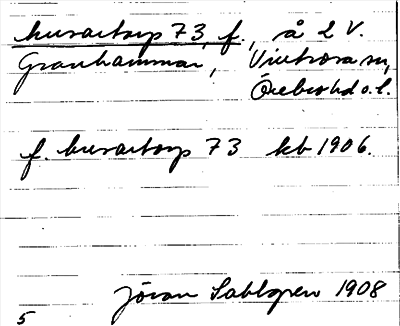 husartorp 73, f., å 2 V.
Granhammar, Vintrosa sn,
Örebro hd o. l.
f. husartorp 73 kb 1906.
Jöran Sahlgren 1908
5